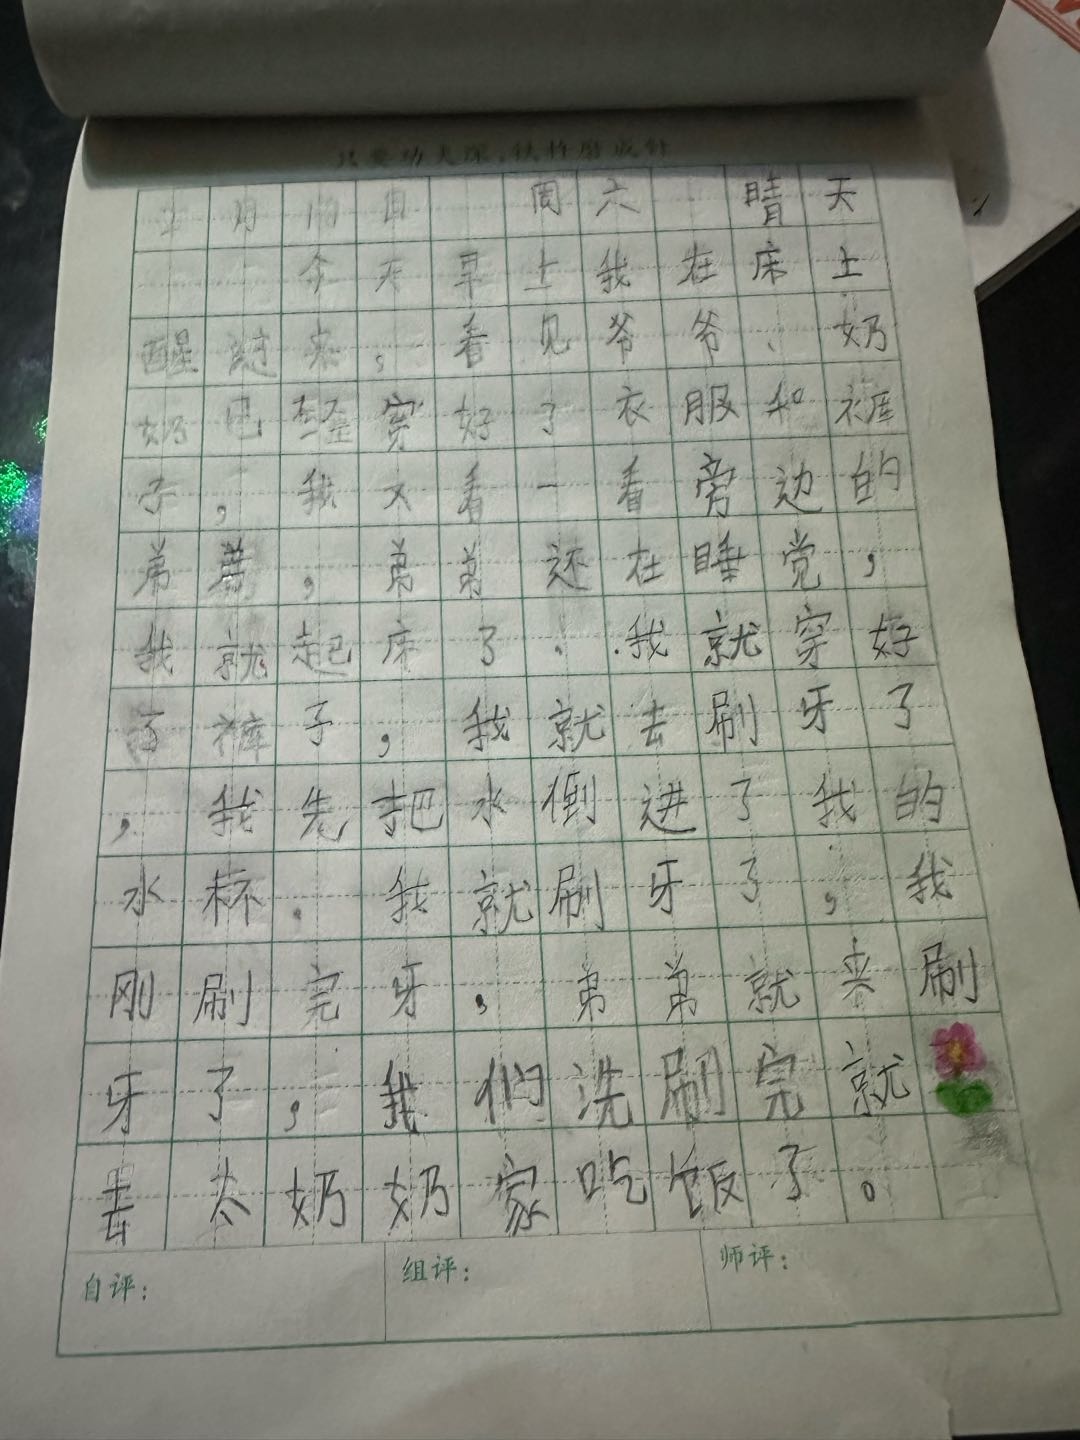 只要功夫深，铁杵磨成针
月 日 周六 晴天
今天早上我在床上
醒过来，看见爷爷、奶
奶已经穿好了衣服和裤
子，我又看一看旁边的
弟弟，弟弟还在睡觉，
我就起床了．我就穿好
了裤子，我就去刷牙了
，我先把水倒进了我的
水杯．我就刷牙了，我
刚刷完牙，弟弟就来刷
牙了，我们洗刷完就
去太奶奶家吃饭了。
自评： 组评： 师评：